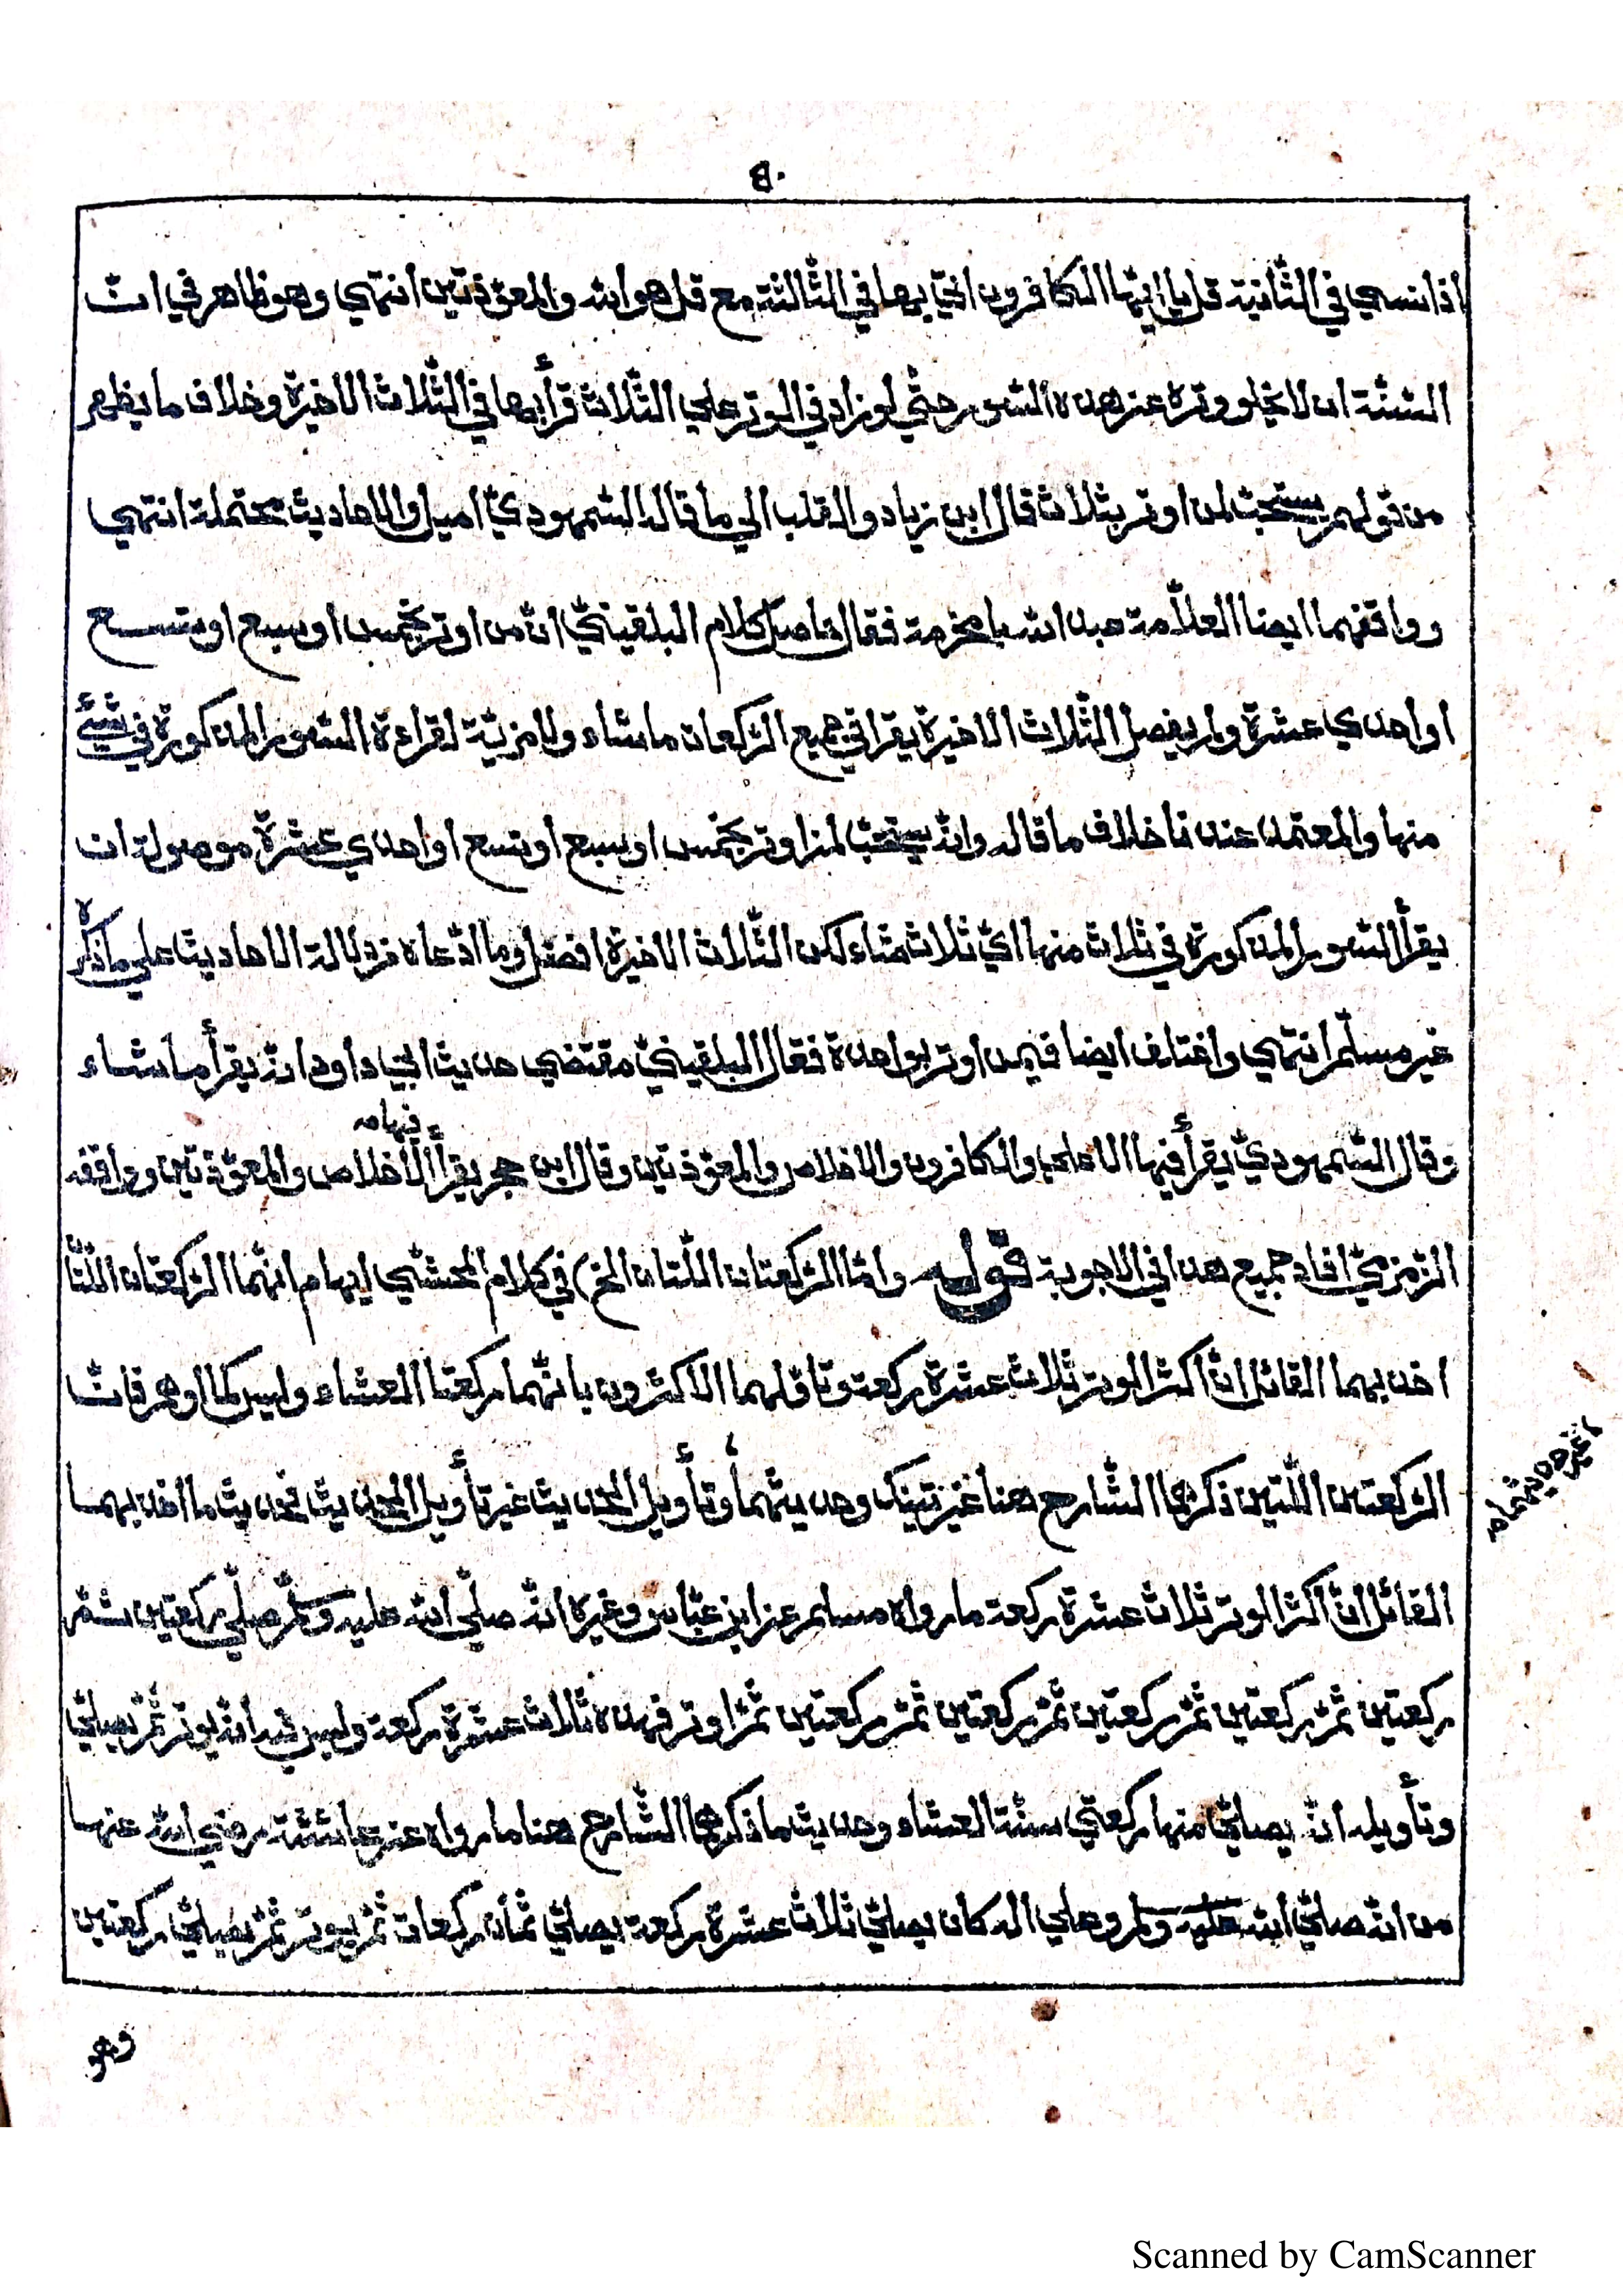 ٥٠
اذا نسي في الثّانية قل يا ايّها الكافرون اتي بها في الثّالثة مع قل هو الله والمعوّذتين انتهي وهو ظاهر في انّ
السّنّة ان لا يخلو وتره عن هذه السّور حتّي لو زاد في الوتر علي الثّلاث قرأ بها في الثّلاث الاخيرة وخلاف ما يظهر
من قولهم يستحبّ لمن اوتر بثلاث قال ابن زياد والقلب الي ما قاله السّمهوديّ اميل والاحاديث محتملة انتهي
ووافقهما ايضا العلاّمة عبد الله بامخرمة فقال حاصل كلام البلقينيّ انّ من اوتر بخمس او سبع او بتسع
او احدي عشرة ولم يفصل الثّلاث الاخيرة يقرا في جميع الرّكعات ما شاء ولا مزيّة لقراءة السّور المذكورة في شئ
منها والمعتمد عندنا خلاف ما قاله وانّه يستحبّ لمن اوتر بخمس او سبع او بتسع او احدي عشرة موصولة ان
يقرأ السّور المذكورة في ثلاث منها ايّ ثلاث شاء لكن الثّلاث الاخيرة افضل وما ادّعاه من دلالة الاحاديث علي ما ذكره
غير مسلّم انتهي واختلف ايضا فيمن اوتر بواحدة فقال البلقينيّ مقتضي حديث ابي داود انّه يقرأ ما شاء
وقال السّمهوديّ يقرأ فيها الاعلي والكافرون والاخلاص والمعوّذتين وقال ابن حجر يقرأ الاخلاص والمعوّذتين ووافقه
فيها صه
الزّمزميّ افاد جميع هذا في الاجوبة قوله وامّا الرّكعتان اللّتان الخ) في كلام المحشّي ايهام انّهما الرّكعتان اللّتا
اخذ بهما القائل انّ اكثر الوتر ثلاث عشرة ركعة وتاوّلهما الاكثرون بانّهما ركعتا العشاء وليس كما اوهم فانّ
الرّكعتين اللّتين ذكرهما الشّارح هنا غير تينك وحديثهما وتأويل الحديث غير تأويل الحديث فحديث ما اخذ بهما
غير حديثهما صه
القائل انّ اكثر الوتر ثلاث عشرة ركعة ما رواه مسلم عن ابن عبّاس وغيره انّه صلّي الله عليه وسلّم صلّي ركعتين ثمّ
ركعتين ثمّ ركعتين ثمّ ركعتين ثمّ ركعتين ثمّ ركعتين ثمّ اوتر فهذه ثلاث عشرة ركعة وليس فيه انّه يوتر ثمّ يصلّي
وتأويله انّه يصلّي منها ركعتي سنّة العشاء وحديث ما ذكرهما الشّارح هنا ما رواه عن عائشة رضي الله عنها
من انّه صلّي الله عليه وسلم وعلي اله كان يصلّي ثلاث عشرة ركعة يصلّي ثمان ركعات ثمّ يوتر ثمّ يصلّي ركعتين
وهو
Scanned by CamScanner